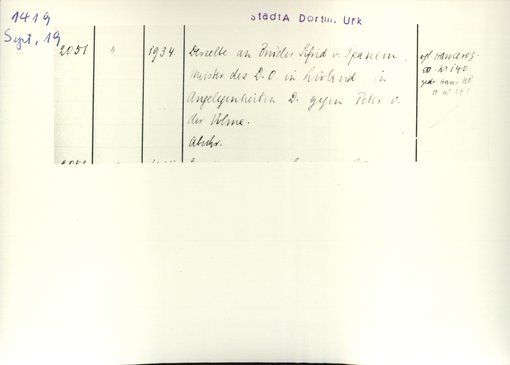 1419
Sept. 19
StadtA Dortm. Urk
2051 " 1934. Derselbe an Bruder Sifrid v. Spanem,
Meister des D.O in Livland, in
Angelegenheiten D. gegen Peter v.
der Volme.
Abschr.
vgl. Hanserez.